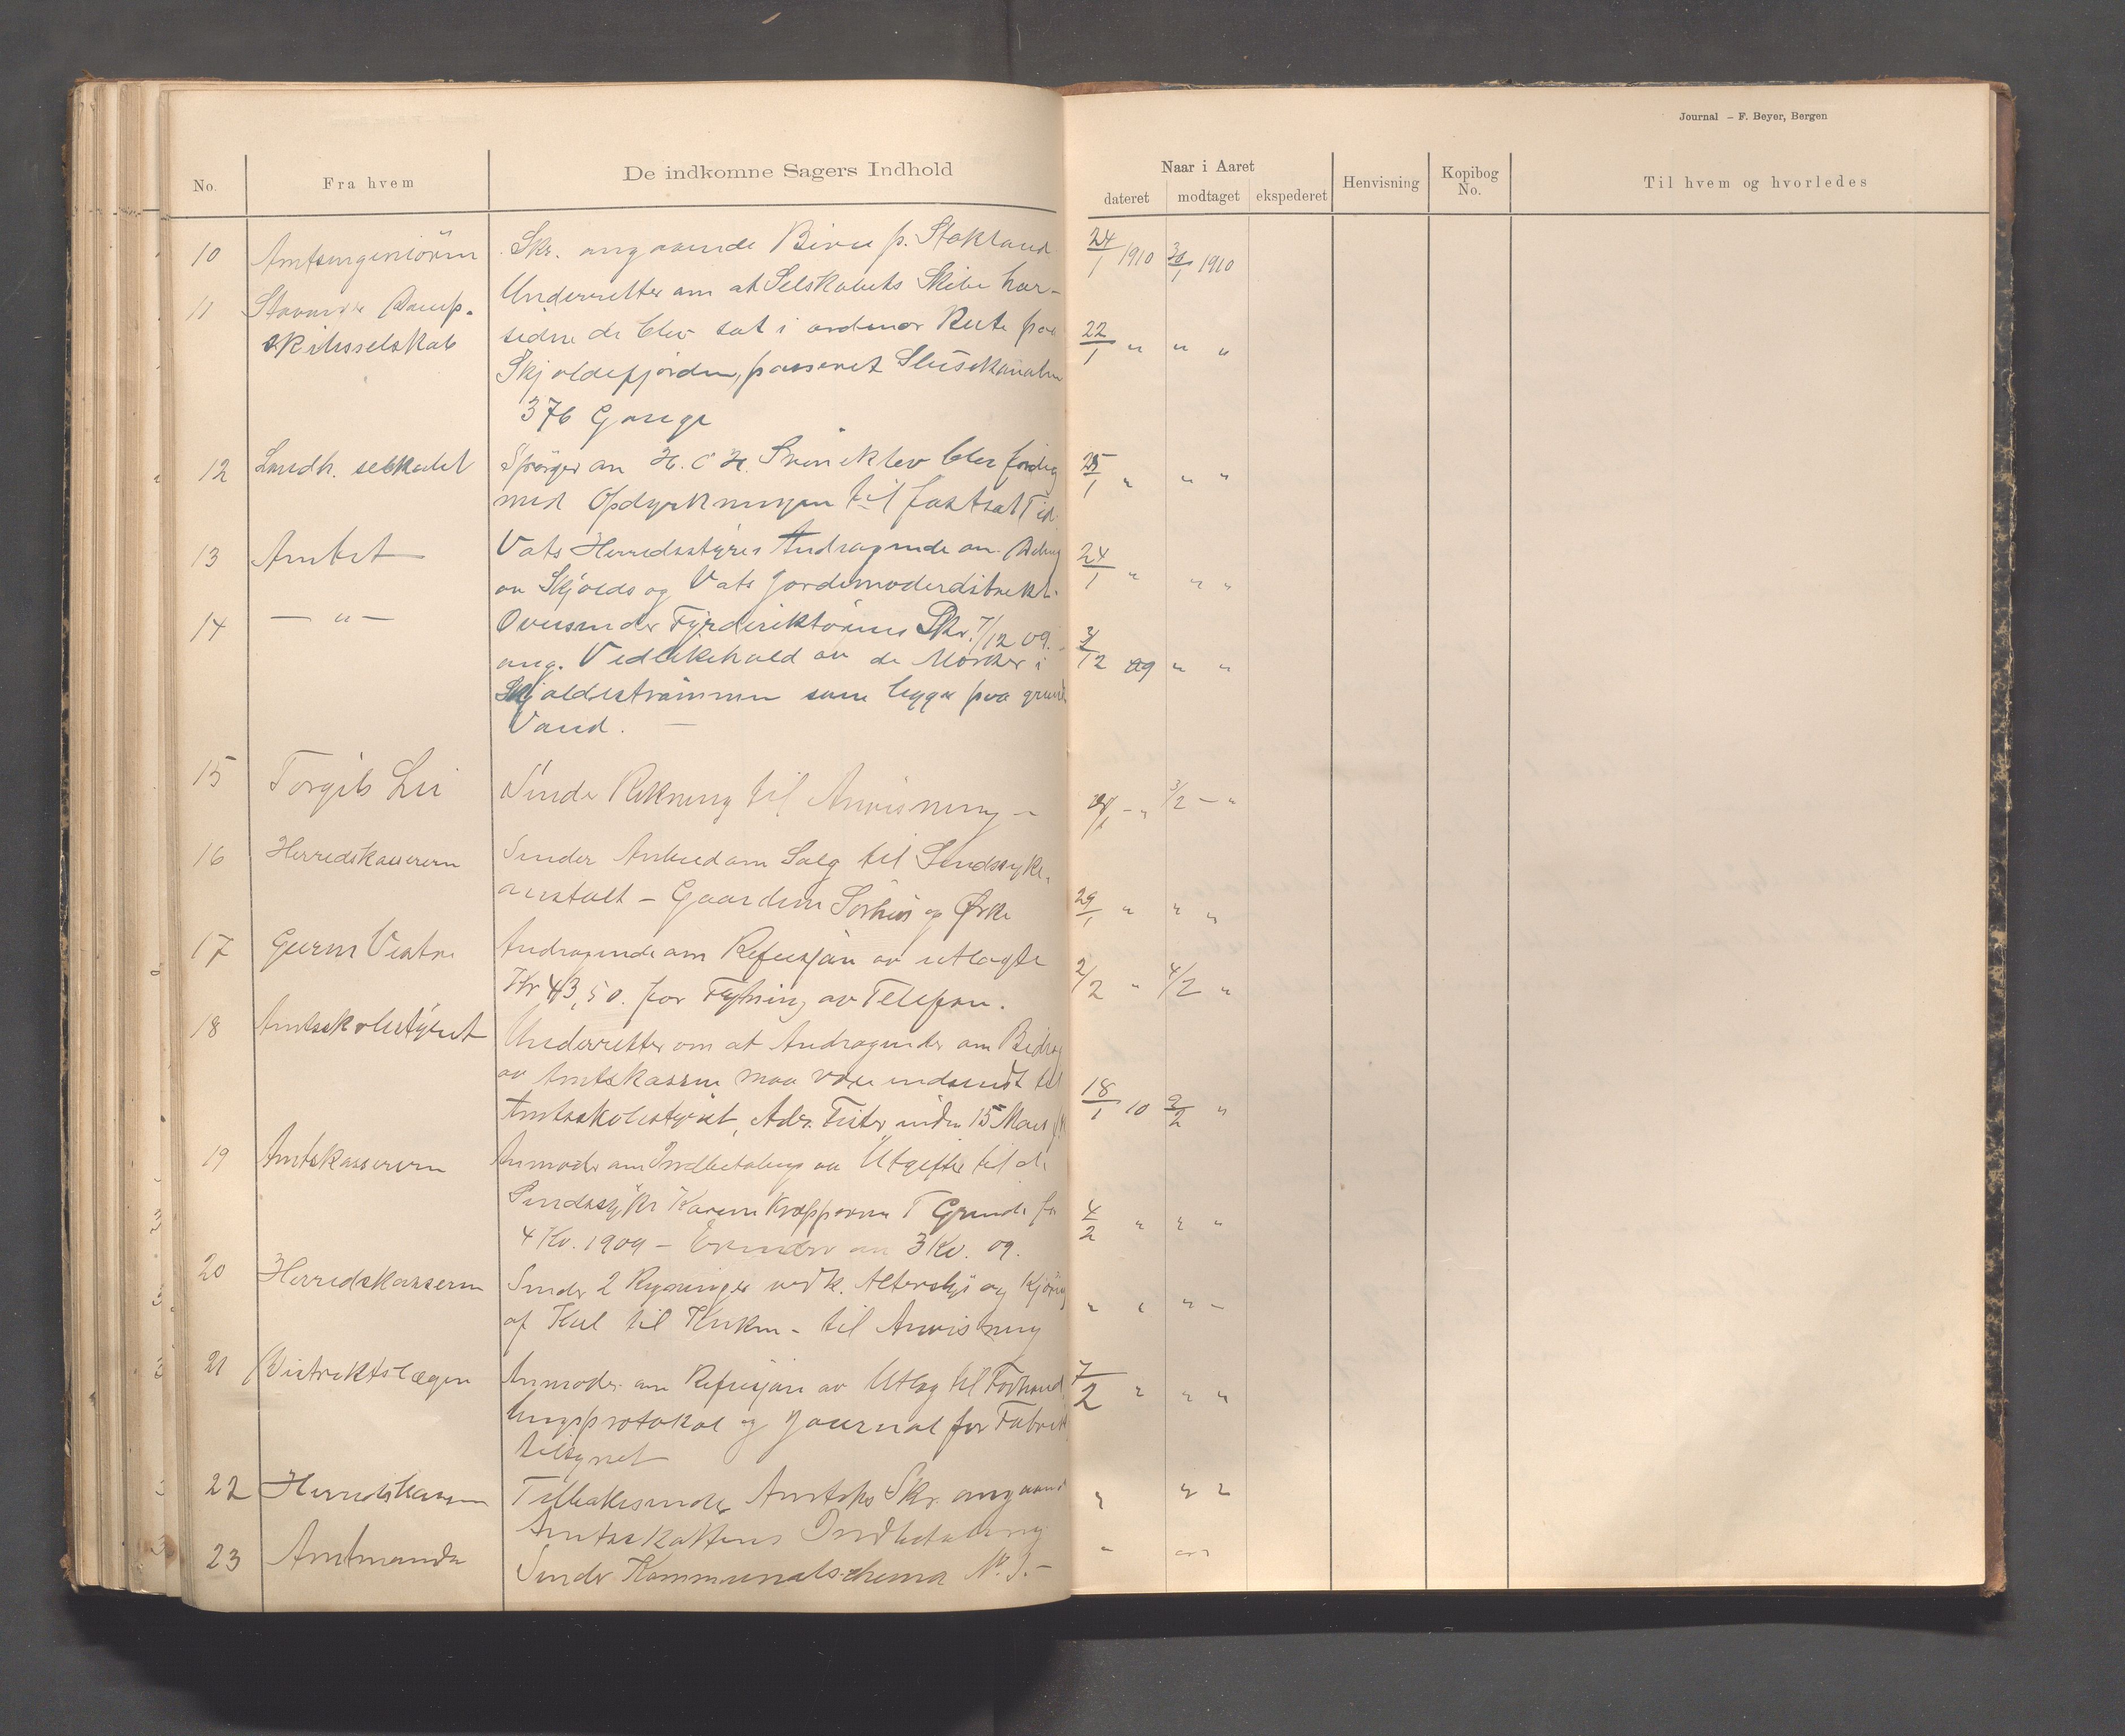 Journal – F. Beyer, Bergen
No. Fra hvem De indkomne Sagers Indhold Naar i Aaret Henvisning Kopibog No. Til hvem og hvorledes
dateret modtaget ekspederet
10 Amtsingeniören Skr. angaaende p. Stokland 24/1 1910 1910
11 Stavanger Damp- Underretter om at Selskabets Skibe har-
skibsselskab siden de blev sat i ordinær Rute paa 22/1 " " "
Skjoldefjorden, passeret Slusekanalen
376 Gange
12 Landh. selskabet Spörger om H. C. H. blir færdig 25/1 " " "
med Opdyrkningen til fastsat Tid.
13 Amtet Vats Herredsstyres Andragende om Deling 24/1 " " "
av Skjolds og Vats Jordemoderdistrikt.
14 — " — Oversender Fyrdirektörens Skr. 7/12 09.
ang. Vedlikehold av de Mærker i /12 09 " "
Skjoldeströmmen som ligger paa grundt
Vand. —
15 Torgils Lii Sender Rekning til Anvisning – 3/2 – "
16 Herredskasseren Sender Anbud om Salg til Sindssyke-
anstalt – Gaardene og Ørke 29/1 " " "
17 Andragende om Refusjon av utlagte
Kr 43,50. for Flytning av Telefon. 2/2 " 4/2 "
18 Amtsskolestyret Underretter om at Andragender om Bidrag
av Amtskassen maa være indsendt til
Amtsskolestyret, Adr. inden 15 Mars 18/1 10 "
19 Amtskassereren Anmoder om Indbetaling av Utgifter til de
Sindssyke Karen T Grinde for 4/2 " " "
4 Kv. 1909 – Erindrer om 3 Kv. 09.
20 Herredskasseren Sender 2 Regninger vedk. og Kjöring " " " –
af Kul til Kirken – til Anvisning
21 Distriktslægen Anmoder om Refusjon av Utlæg til Forhand- 7/2 " " "
lingsprotokol og Journal for Fabrik
tilsynet
22 Herredskasseren Tilbakesender Skr. angaaende " " "
Amtsskattens Indbetaling
23 Amtmanden Sender Kommunalschema N. I. –